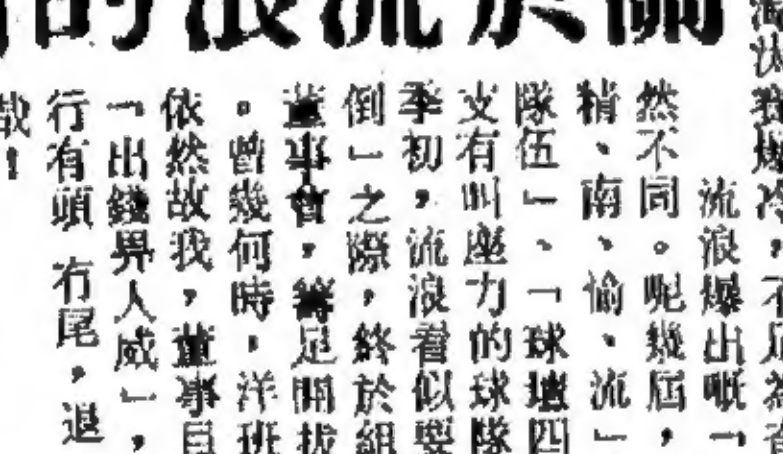 的浪流於關
流浪爆出嘅「
然不同。呢幾屆,
精、南、愉、流」
隊伍」、「球壇四
支有叫座力的球隊
季初,流浪看似要
倒」之際,終於組
董事會,籌足開拔
。曾幾何時,洋班
依然故我,董事
「出錢畀人威」,
行有頭冇尾,退
哉!